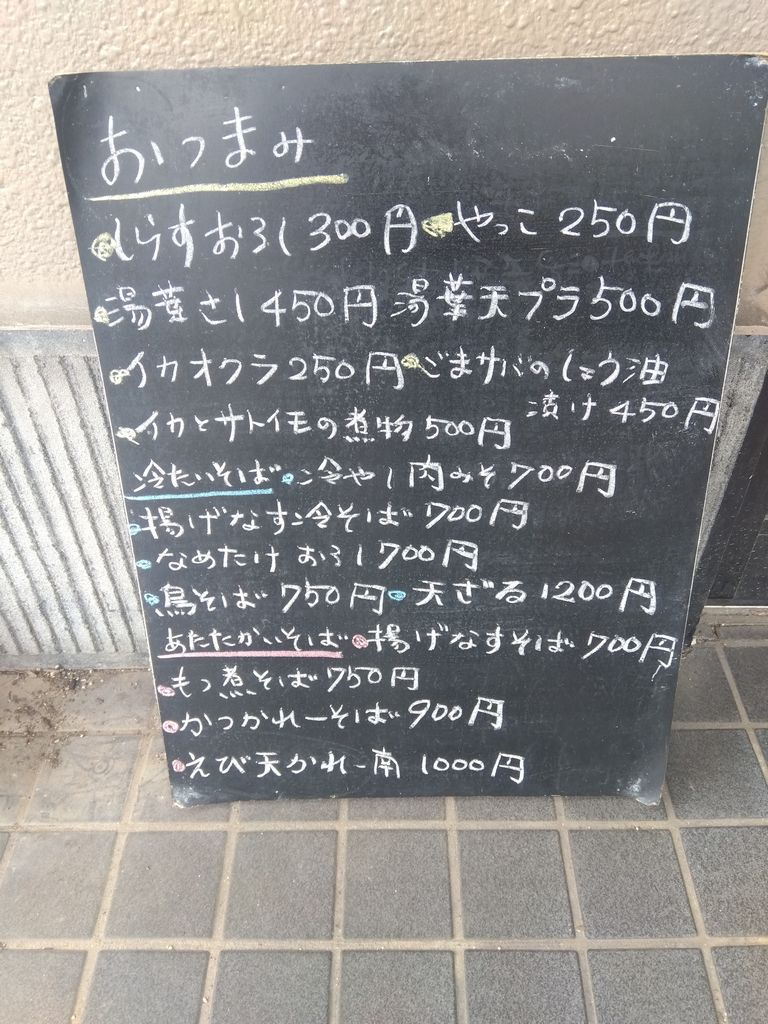 おつまみ
しらすおろし300円 やっこ 250円
湯葉さし450円 湯葉天プラ500円
イカオクラ250円 ごまサバのしょう油
漬け450円
イカとサトイモの煮物500円
冷たいそば 冷やし肉みそ700円
揚げなす冷そば 700円
なめたけおろし700円
鳥そば 750円 天ざる1200円
あたたかいそば 揚げなすそば700円
もつ煮そば750円
かつかれーそば900円
えび天かれー南 1000円